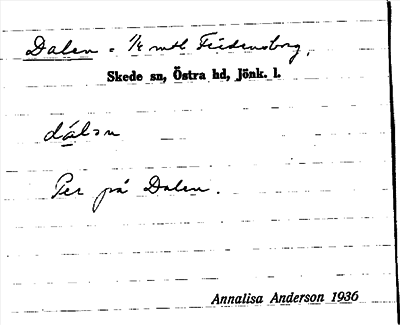 Dalen = 1/4 mtl Fridensborg,
Skede sn, Östra hd, Jönk. l.
dálən
Per på Dalen.
Annalisa Anderson 1936